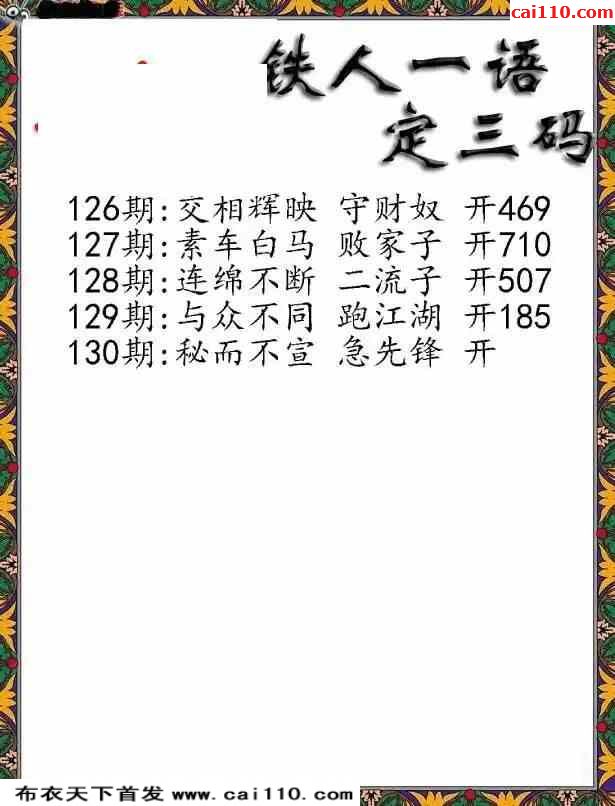 cai110.com
铁人一语
定三码
126期:交相辉映 守财奴 开469
127期:素车白马 败家子 开710
128期:连绵不断 二流子 开507
129期:与众不同 跑江湖 开185
130期:秘而不宣 急先锋 开
布衣天下首发 www.cai110.com